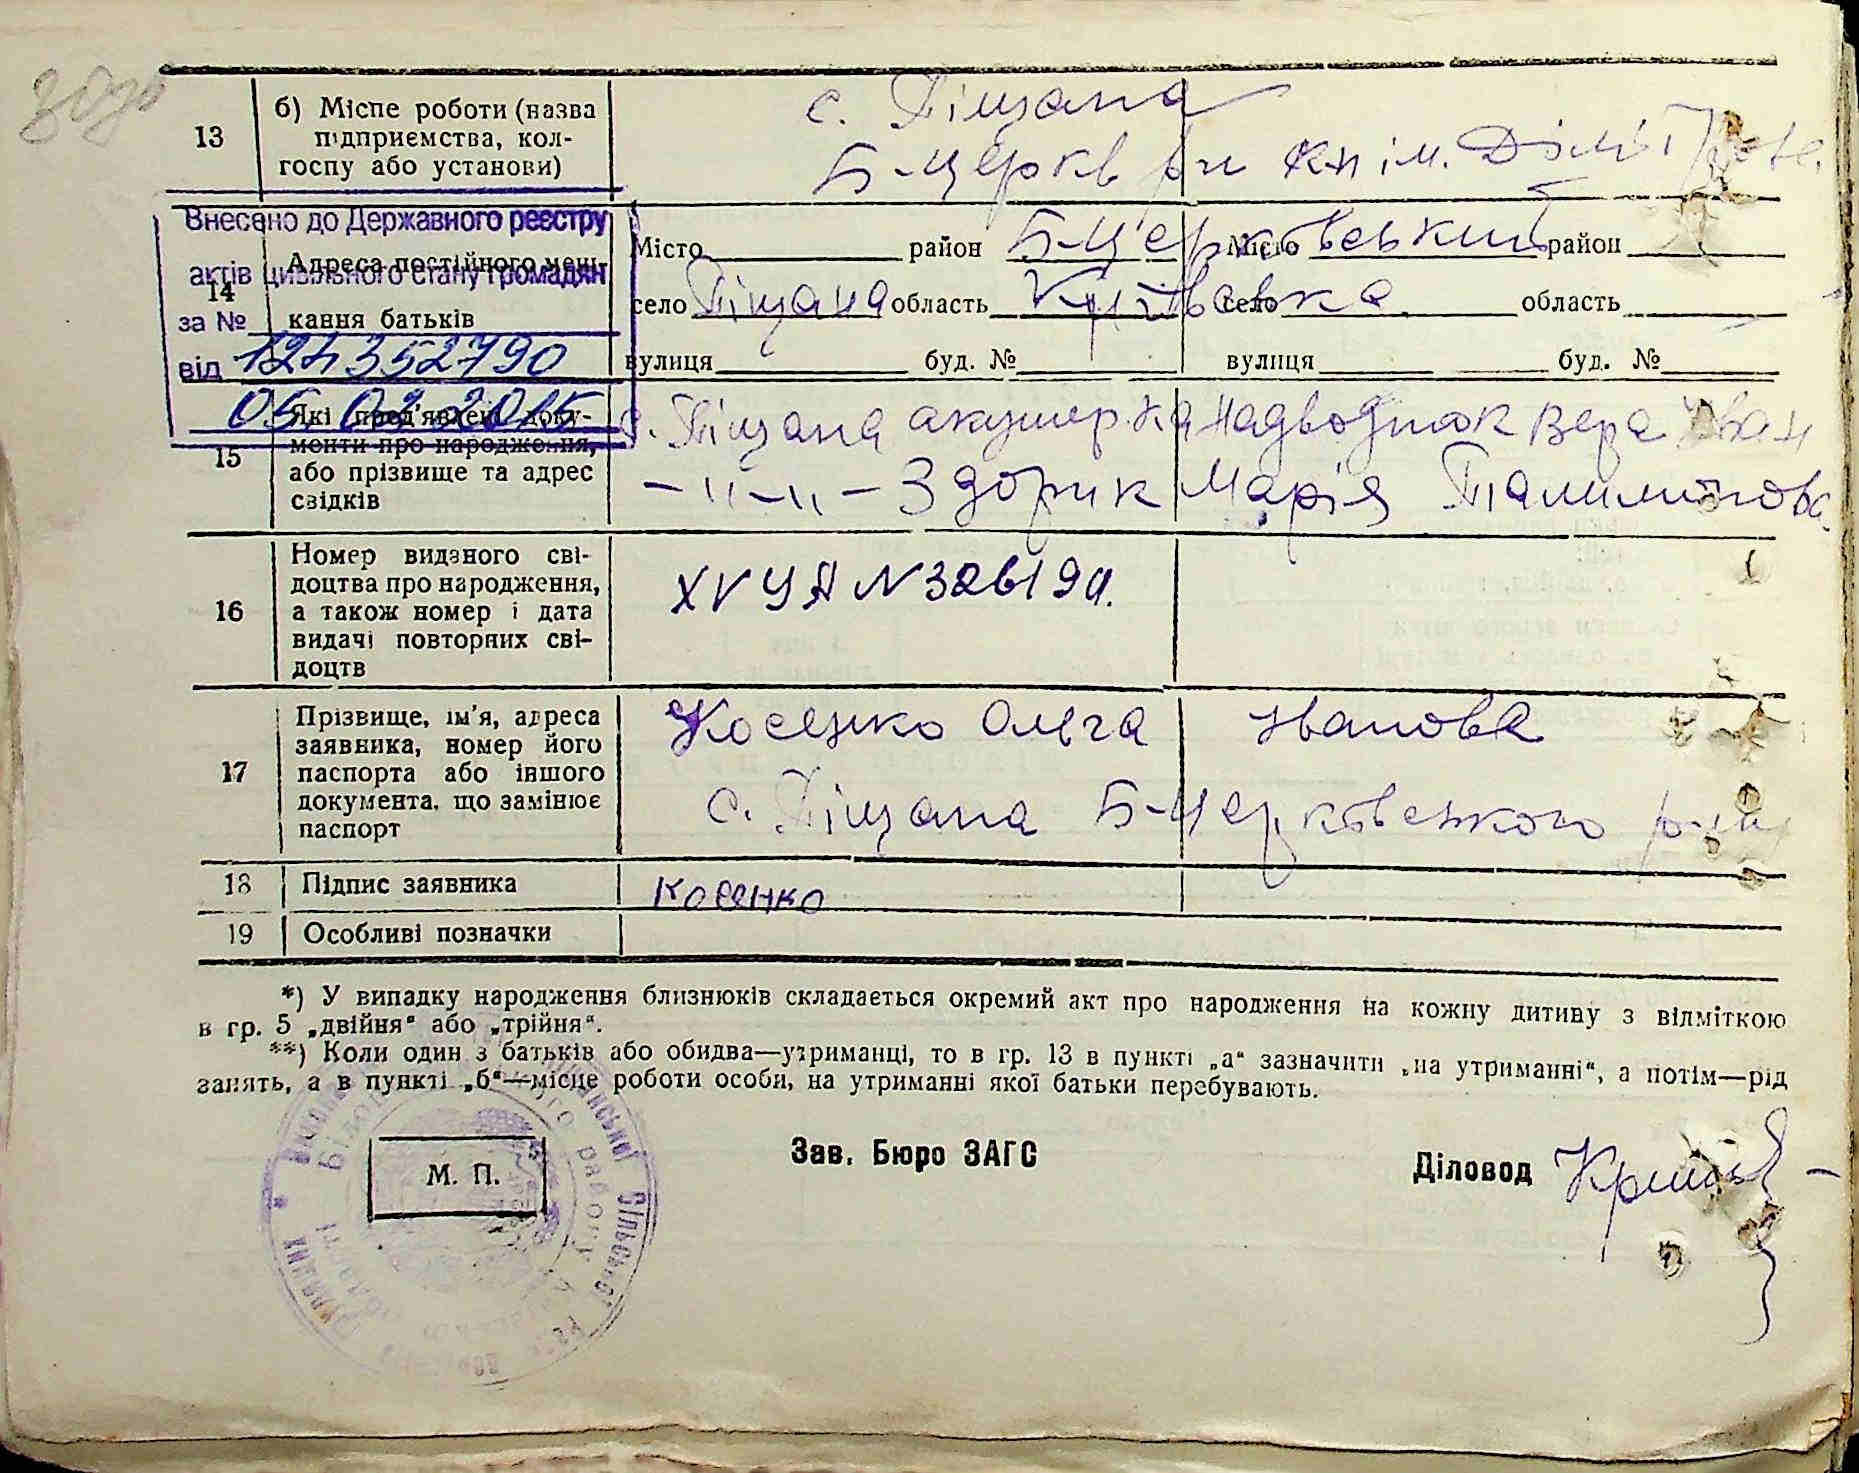 13
б) Місце роботи (назва
підприємства, кол-
госпу або установи)
с. Піщана
Б-Церкв р-н к-п ім.
Внесено до Державного реєстру
актів цивільного стану громадян
за №
124352790
від
05.02.2015
14
Адреса постійного меш-
кання батьків
Місто район Б-Церковський Місто район
село Піщана область Київська село область
вулиця буд. № вулиця буд. №
15
Які пред'явлені доку-
менти про народження,
або прізвище та адрес
свідків
с. Піщана акушерка Надводнюк Вера Іван
-"-"- Здорик Марія
16
Номер виданого сві-
доцтва про народження,
а також номер і дата
видачі повторних сві-
доцтв
XV УЯ N
17
Прізвище, ім'я, адреса
заявника, номер його
паспорта або іншого
документа, що замінює
паспорт
Косенко Ольга Іванова
с. Піщана Б-Церковського р-ну
18
Підпис заявника
косенко
19
Особливі позначки
*) У випадку народження близнюків складається окремий акт про народження на кожну дитину з відміткою
в гр. 5 „двійня“ або „трійня“.
**) Коли один з батьків або обидва—утриманці, то в гр. 13 в пункті „а“ зазначити „на утриманні“, а потім—рід
занять, а в пункті „б“—місце роботи особи, на утриманні якої батьки перебувають.
М. П.
Зав. Бюро ЗАГС
Діловод